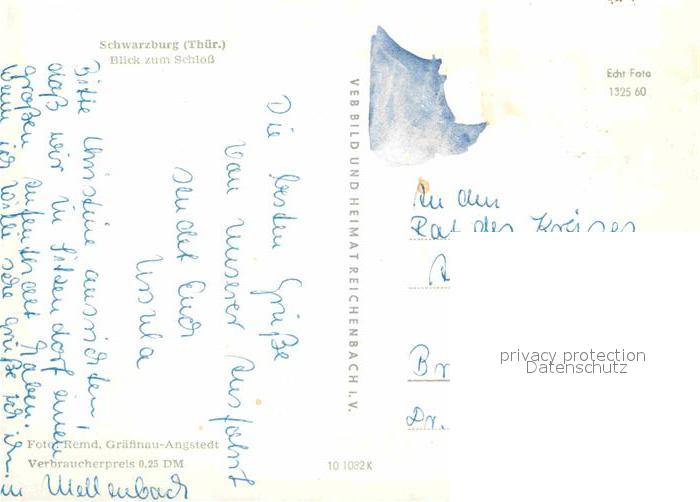 Schwarzburg (Thür.)
Blick zum Schloß
Echt Foto
1325 60
VEB BILD UND HEIMAT REICHENBACH I. V.
Die besten Grüße
von unserer Ausfahrt
sendet Euch
Ursula
Bitte Christine ausrichten,
daß wir in Sitzendorf einen
großen Aufenthalt haben.
Wenn ich sehe grüße ich
in Mellenbach
An den
Rat des Kreises
Br
Dr.
privacy protection
Datenschutz
Foto: Remd, Gräfinau-Angstedt
Verbraucherpreis 0,25 DM
10 1082 K